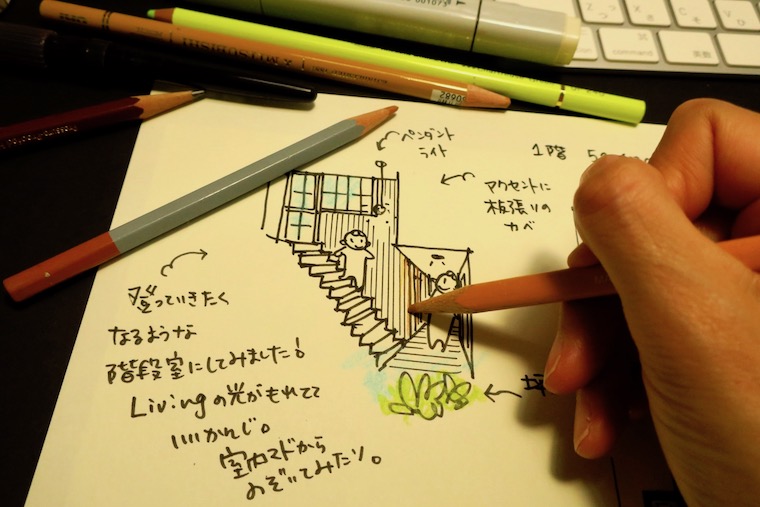 ペンダント
ライト
1階
アクセントに
板張りの
カベ
登っていきたく
なるような
階段室にしてみました!
Livingの光がもれてて
いいかんじ。
室内マドから
のぞいてみたり。
command
英数